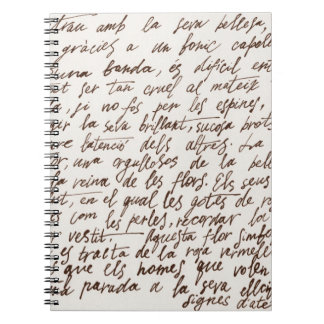 trau amb la seva bellesa,
gràcies a un bonic capoll
una banda, és difícil ent
t ser tan cruel al mateix
, si no fos per les espines,
ar la seva brillant, sucosa brots
ve l'atenció dels altres. La
or, una orgullosos de la bell
a reina de les flors. Els seus
t, en el qual les gotes de ro
com les perles, recordar lo
vestit. Aquesta flor simb
es tracta de la rosa vermell
que els homes que volen
parada a la seva elecció
signes d'ate